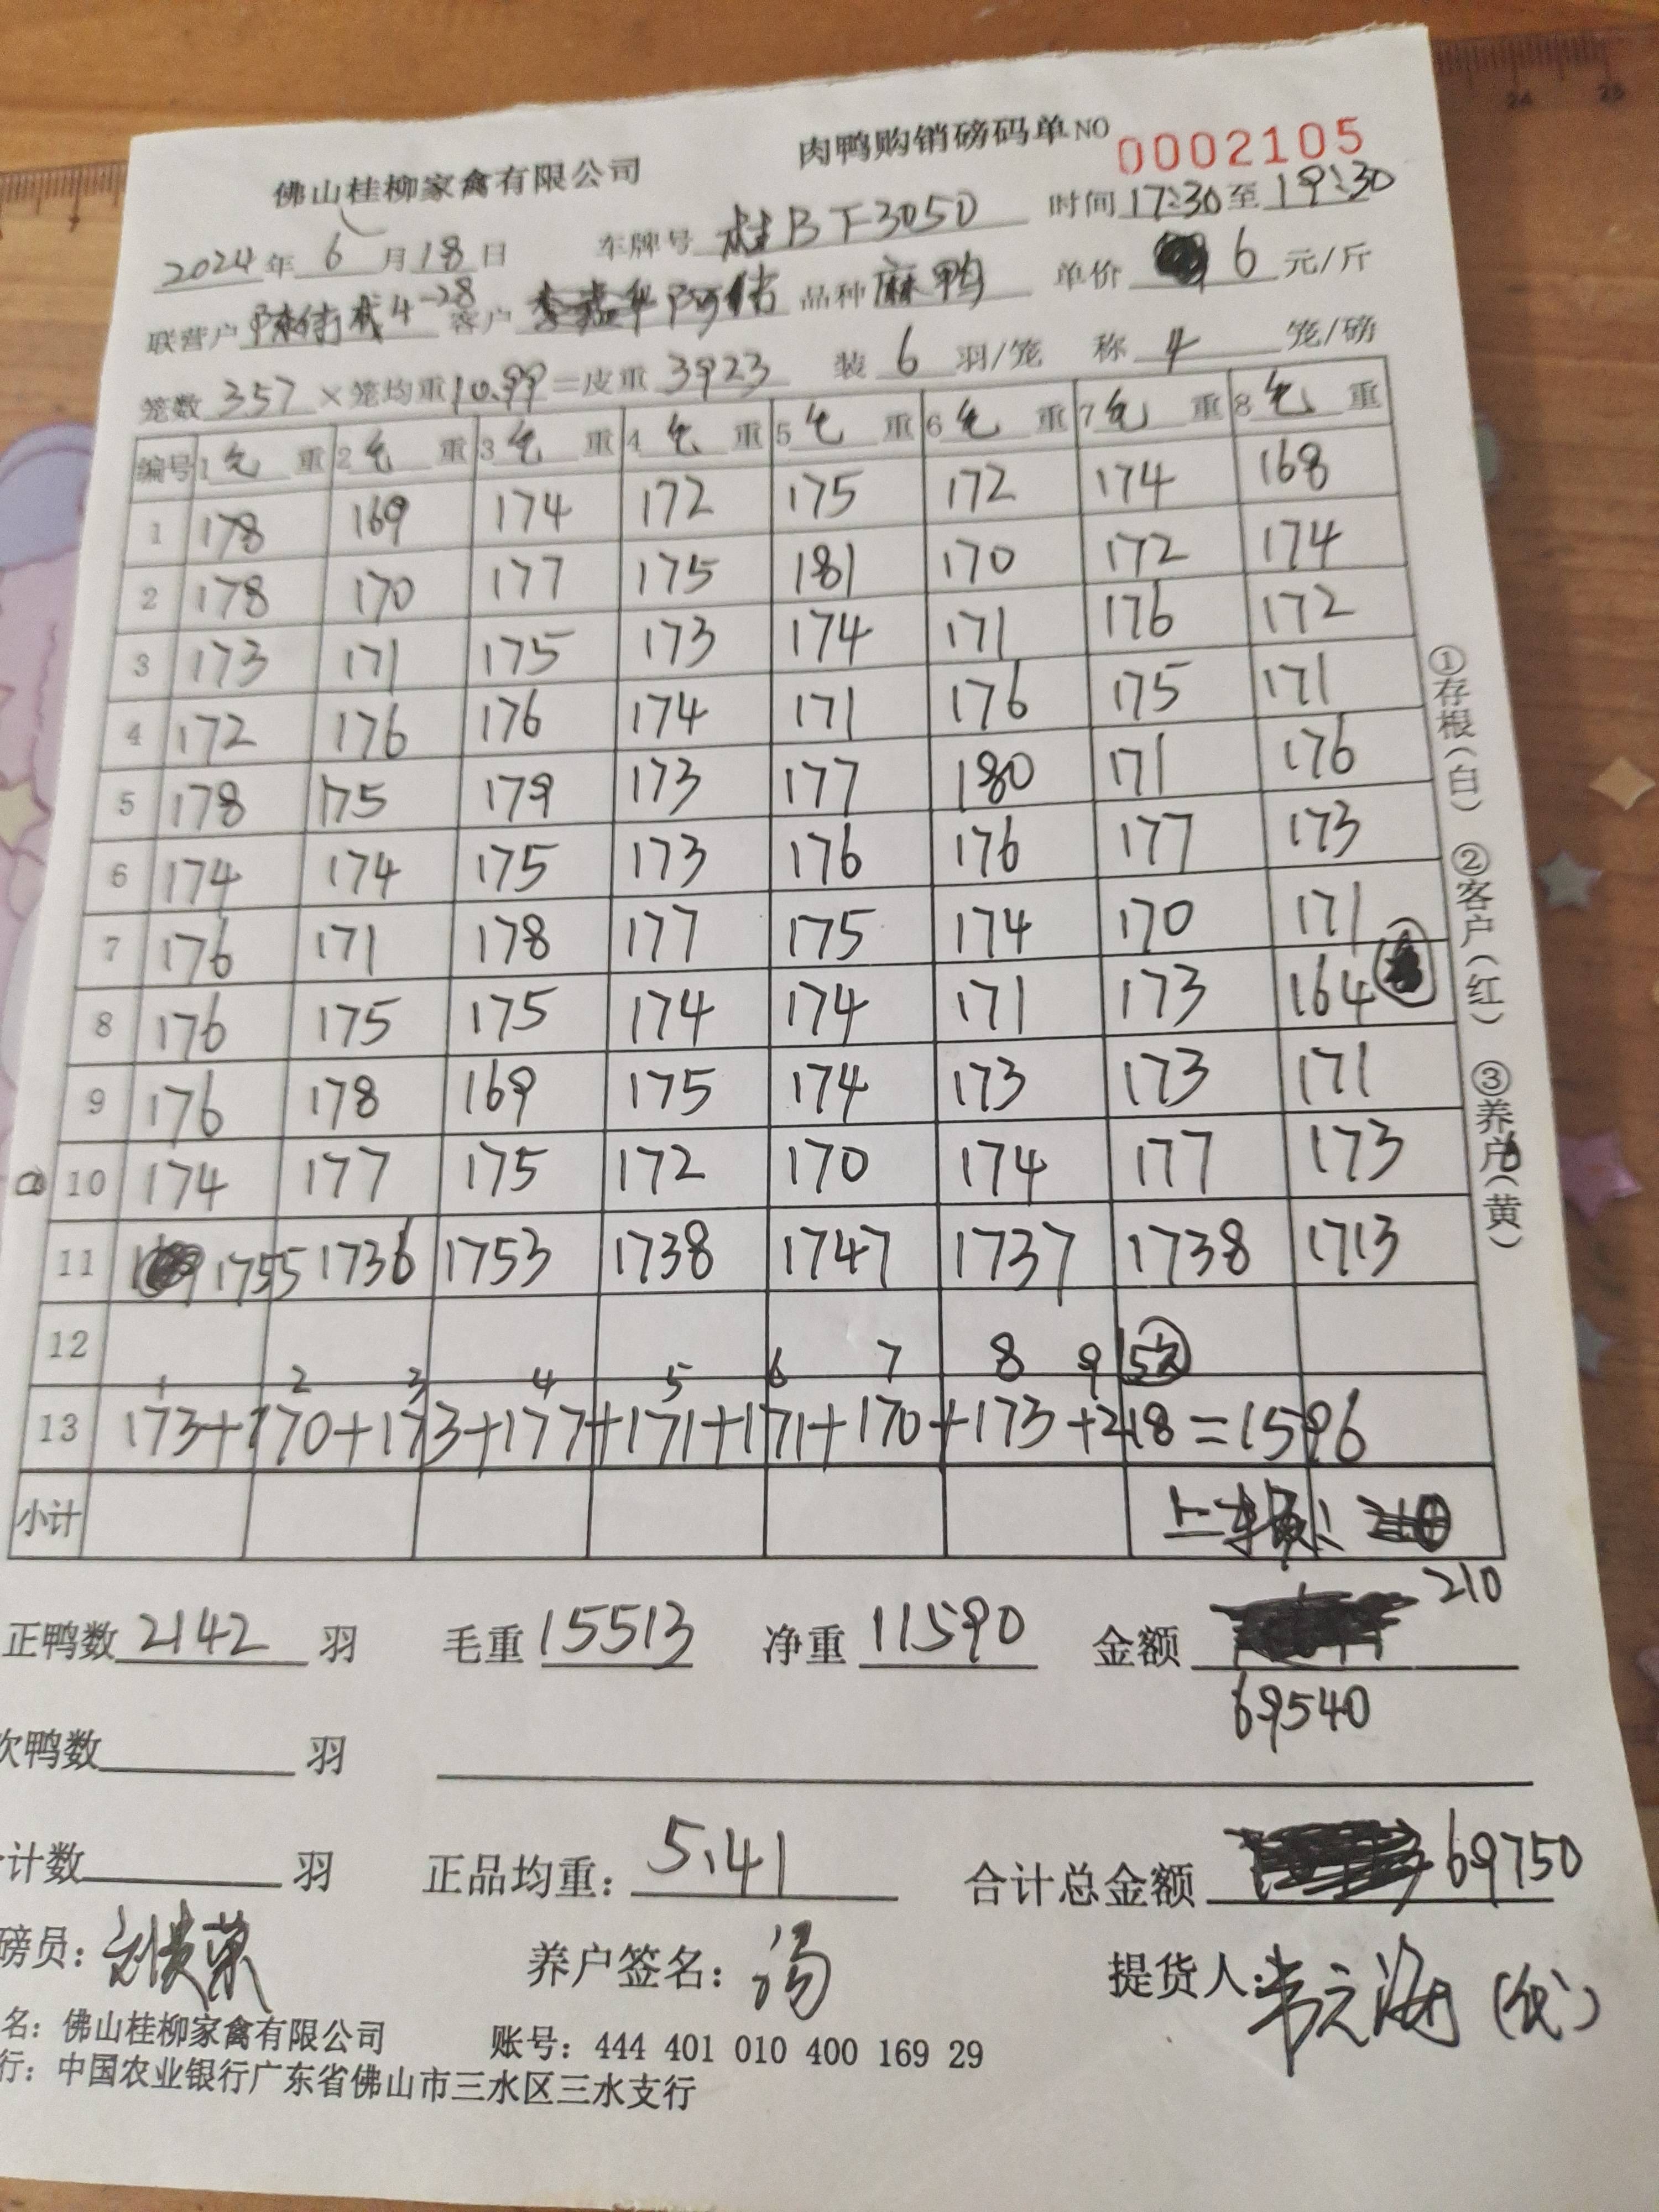 佛山桂柳家禽有限公司 肉鸭购销磅码单 NO 0002105
2024年6月18日 车牌号 桂BT3050 时间 17:30至19:30
联营户 4-28 客户 品种 麻鸭 单价 6 元/斤
笼数 357 ×笼均重 10.99 =皮重 3923 装 6 羽/笼 称 4 笼/磅
编号 1 毛 重 2 毛 重 3 毛 重 4 毛 重 5 毛 重 6 毛 重 7 毛 重 8 毛 重
1 178 169 174 172 175 172 174 168
2 178 170 177 175 181 170 172 174
3 173 171 175 173 174 171 176 172
4 172 176 176 174 171 176 175 171
5 178 175 179 173 177 180 171 176
6 174 174 175 173 176 176 177 173
7 176 171 178 177 175 174 170 171
8 176 175 175 174 174 171 173 164
9 176 178 169 175 174 173 173 171
10 174 177 175 172 170 174 177 173
11 1755 1736 1753 1738 1747 1737 1738 1713
12
1 2 3 4 5 6 7 8 9 5
13 173+170+173+177+171+171+170+173+218=1596
小计 上车费:
210
正鸭数 2142 羽 毛重 15513 净重 11590 金额
69540
次鸭数 羽
计数 羽 正品均重: 5.41 合计总金额 69750
磅员: 刘贵荣 养户签名: 冯 提货人: (代)
名: 佛山桂柳家禽有限公司 账号: 444 401 010 400 169 29
行: 中国农业银行广东省佛山市三水区三水支行
①存根(白) ②客户(红) ③养户(黄)
24 25